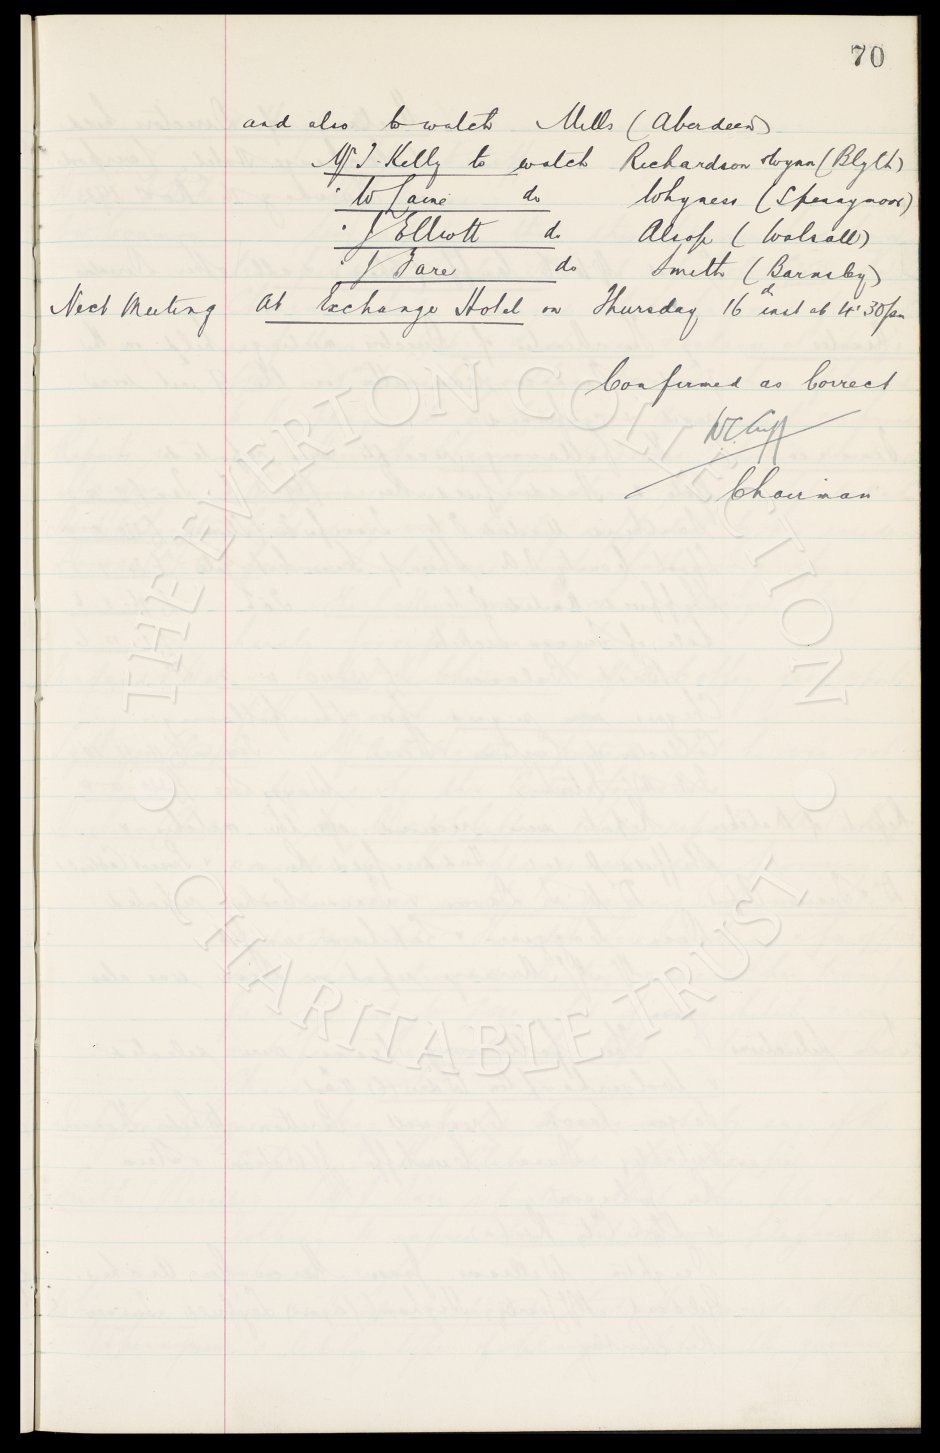 70
and also to watch Mills (Aberdeen)
Mr J. Kelly to watch Richardson & Wynn (Blyth)
" W Caine do Whyness (Spennymoor)
" J Elliott do Alsop (Walsall)
" J Fare do Smith (Barnsley)
Next Meeting At Exchange Hotel on Thursday 16th inst at 4.30 pm
Confirmed as Correct
W C Cuff
Chairman
THE EVERTON COLLECTION
CHARITABLE TRUST